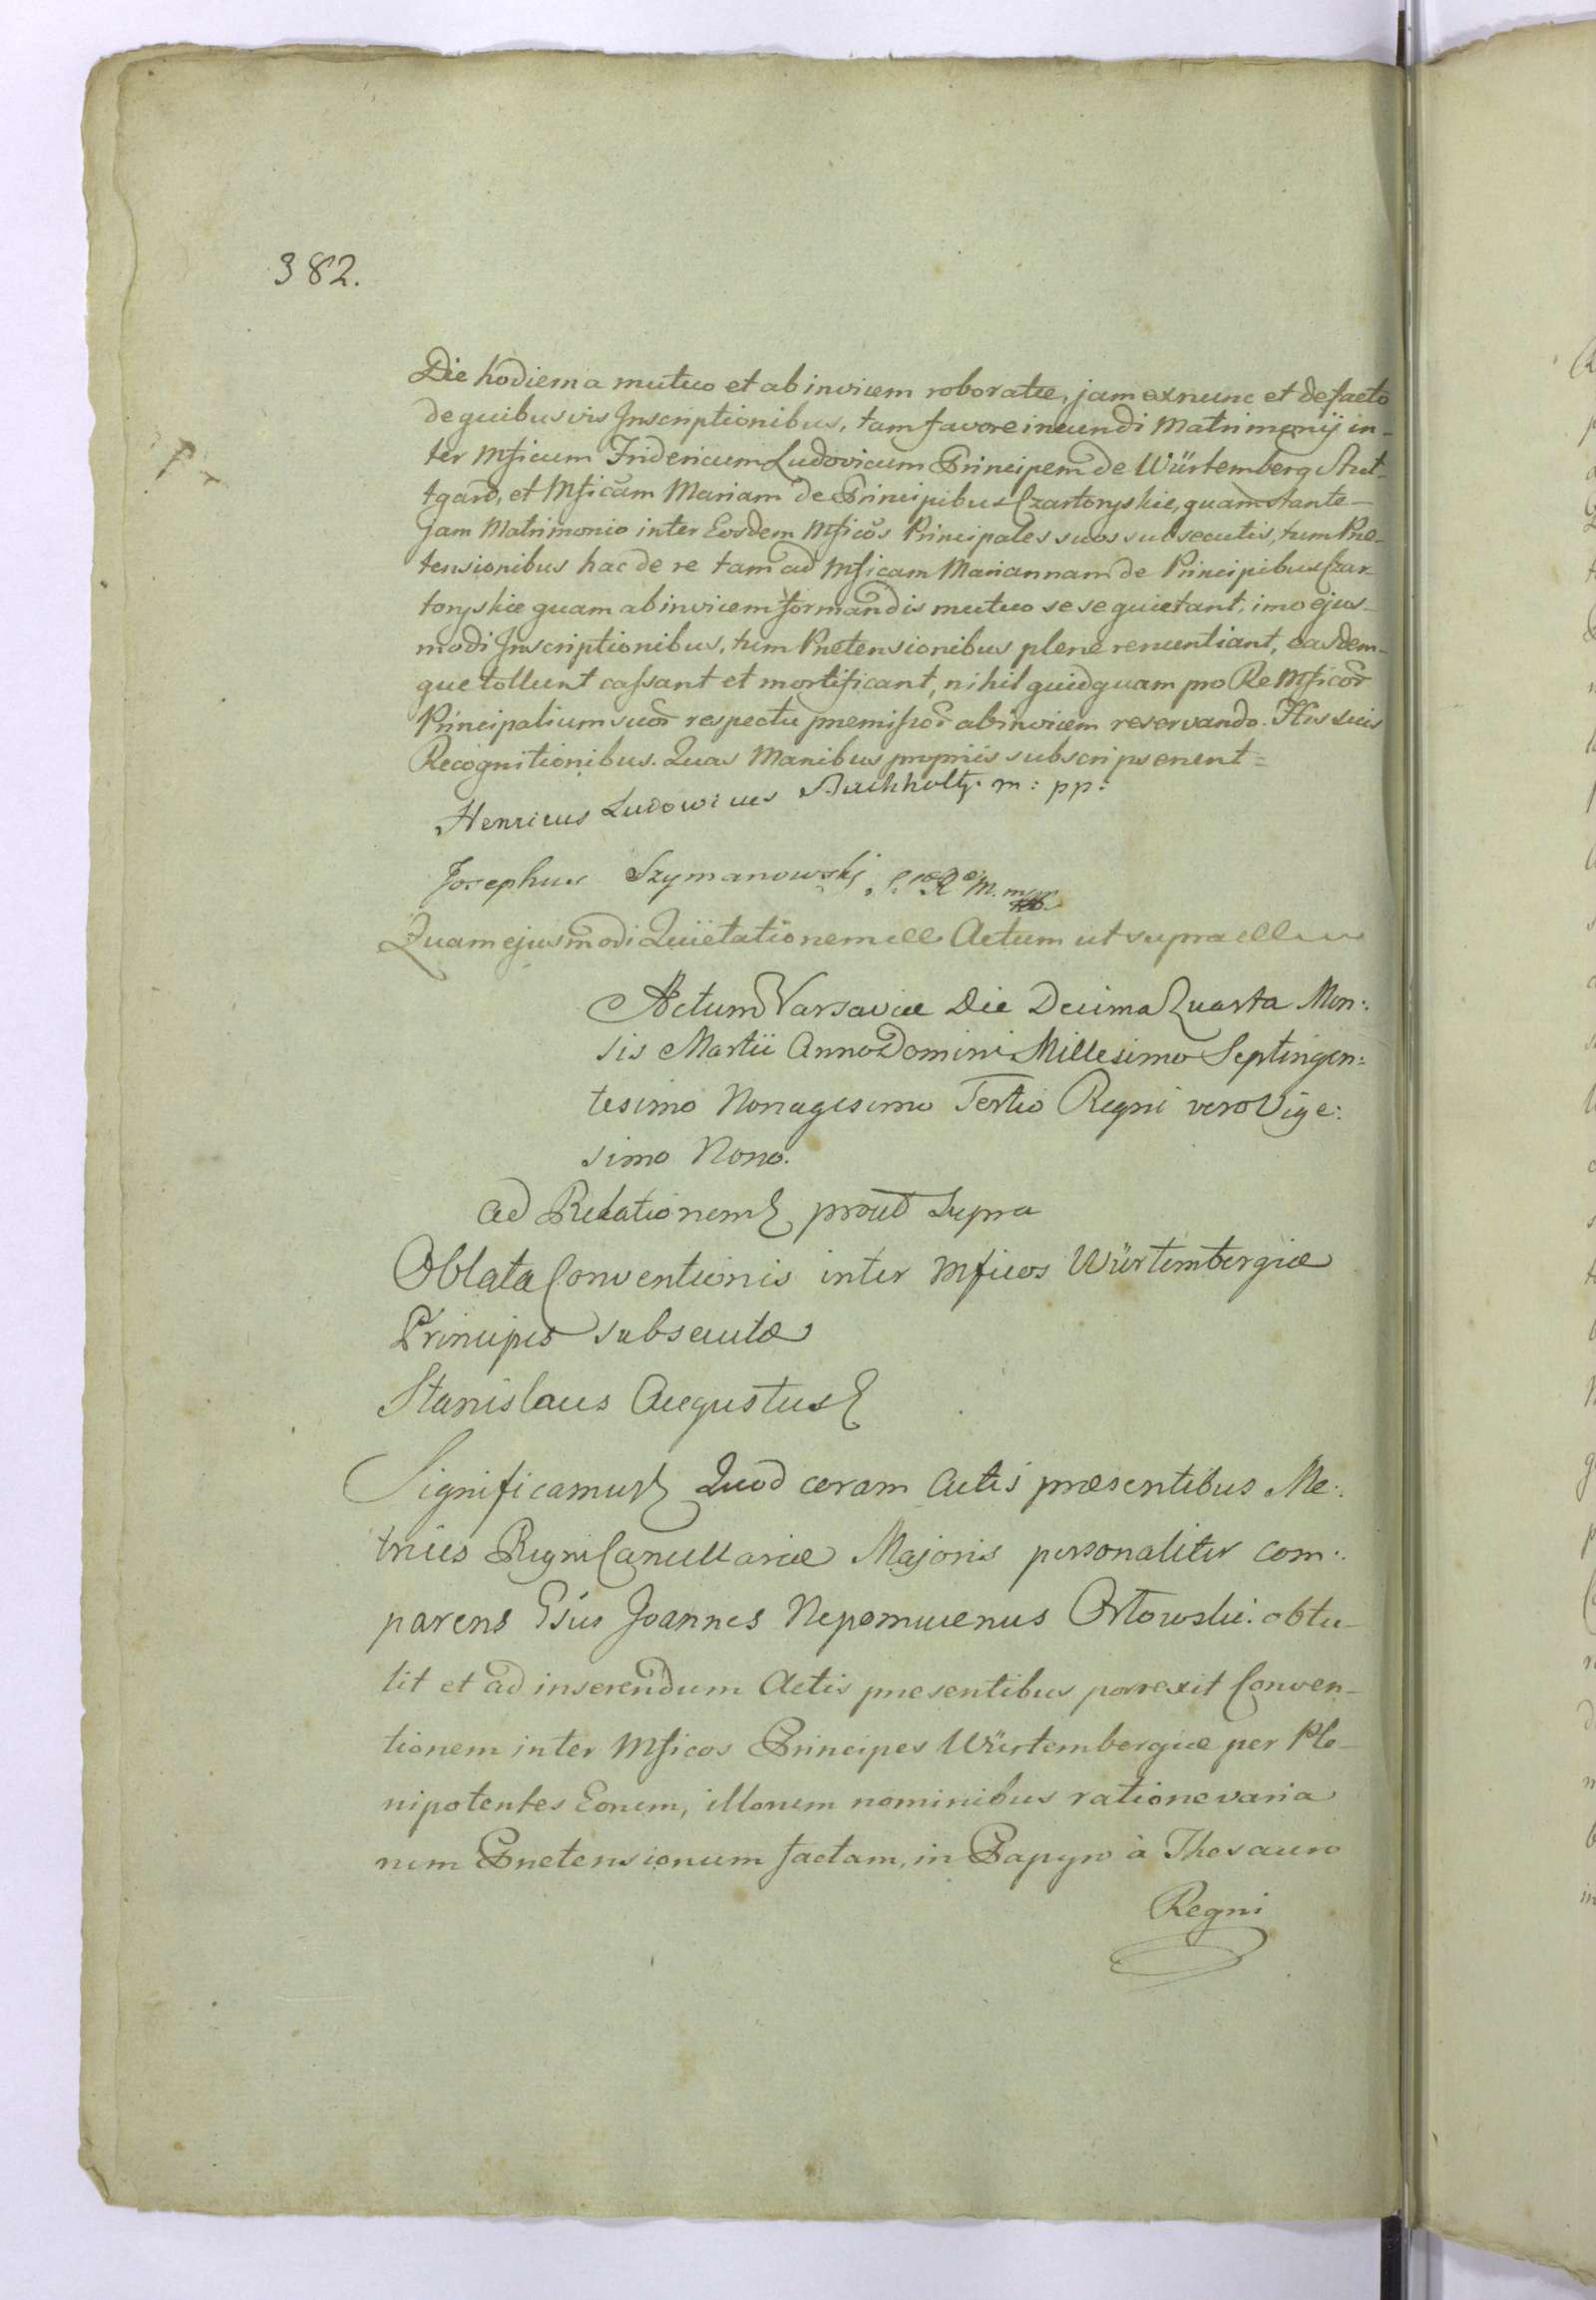 382.
Die hodierna mutuo et ab invicem roboratæ, jam ex nunc et de facto
de quibusvis Inscriptionibus, tam favore ineundi Matrimonij in-
ter Mficum Fridericum Ludovicum Principem de Würtemberg Stut-
tgard, et Mficam Mariam de Principibus Czartoryskie, quam stante
jam Matrimonio inter Eosdem Mficos Principales suos subsecutis, tum Præ-
tensionibus hac de re tam ad Mficam Mariannam de Principibus Czar-
toryskie quam ab invicem formandis mutuo sese quietant, imo ejus-
modi Inscriptionibus, tum Prætensionibus plene renuntiant, easdem-
que tollunt cassant et mortificant, nihil quidquam pro Re Mficor
Principalium suor respectu præmissor ab invicem reservando. His suis
Recognitionibus. Quas Manibus propriis subscripserunt =
Henricus Ludowicus Buchholtz. m: pp:
Josephus Szymanowski
Quam ejusmodi Quietationem Actum ut supra
Actum Varsaviæ Die Decima Quarta Men:
sis Martii Anno Domini Millesimo Septingen:
tesimo Nonagesimo Tertio Regni vero Vige:
simo Nono.
ad Relationem prout Supra
Oblata Conventionis inter Mficos Würtembergiæ
Principes subsecutæ
Stanislaus Augustus
Significamus Quod coram Actis præsentibus Me:
trices Regni Cancellariæ Majoris personaliter com:
parens Gsus Joannes Nepomucenus Orłowski. obtu-
lit et ad inserendum Actis præsentibus porrexit Conven-
tionem inter Mficos Principes Würtembergiæ per Ple-
nipotentes Eorum, illorum nominibus ratione varia
rum Prætensionum factam, in Papyro à Thesauro
Regni